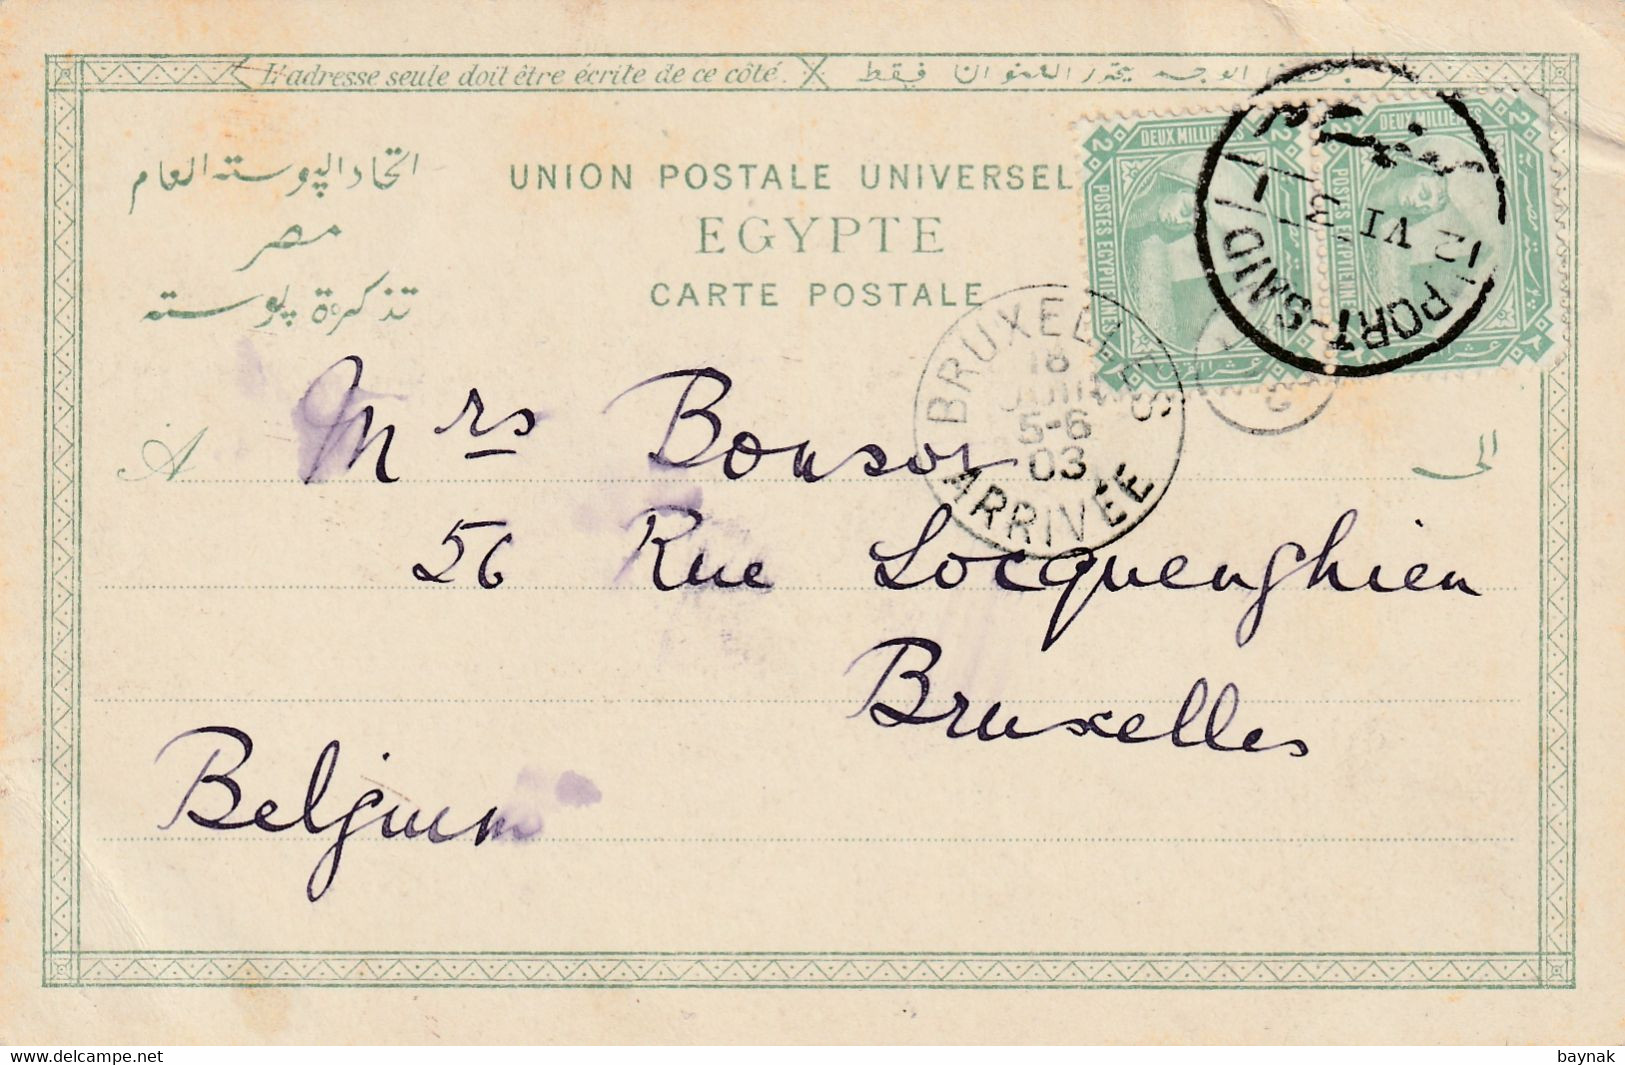 L'adresse seule doit être écrite de ce côté.
فقط
اتحاد البوستة العام
مصر
تذكرة بوستة
UNION POSTALE UNIVERSEL
EGYPTE
CARTE POSTALE
DEUX MILLIEMES
POSTES EGYPTIENNES
DEUX MILLIEMES
POSTES EGYPTIENNES
PORT-SAID
VI
BRUXELLES
18
JUIN
5-6
03
ARRIVÉE
A Mrs Bonsor الى
56 Rue Locquenghien
Bruxelles
Belgium
baynak